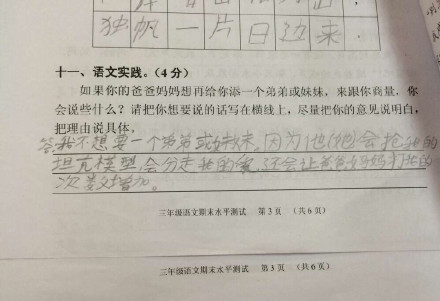 独帆一片日边来.
十一、语文实践。(4分)
如果你的爸爸妈妈想再给你添一个弟弟或妹妹，来跟你商量，你
会说些什么？请把你想要说的话写在横线上，尽量把你的意见说明白，
把理由说具体。
答:我不想要一个弟弟或妹妹。因为他(她)会抢我的
坦克模型，会分走我的爱，还会让爸爸妈妈打我的
次数增加。
三年级语文期末水平测试 第3页 (共6页)
三年级语文期末水平测试 第3页 (共6页)